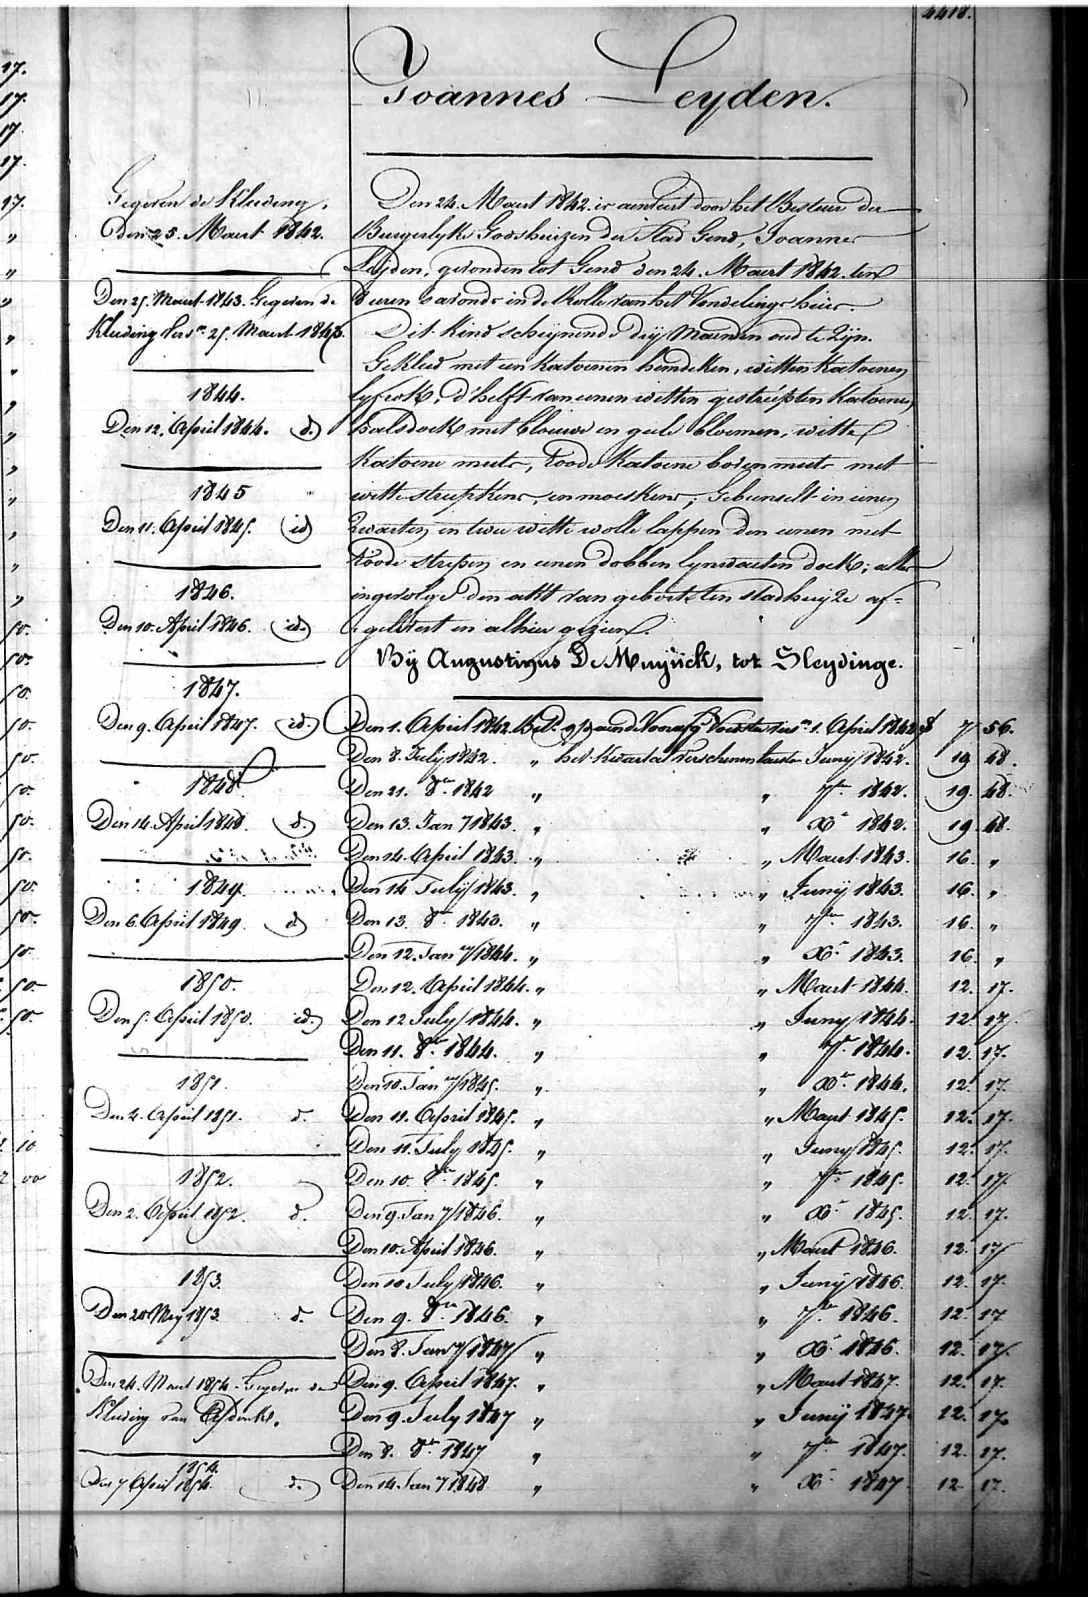 4418.
Joannes Leyden.
Gegeven de Kleeding.
Den 25. Maert 1842.
Den 25. Maert 1843. Gegeven de
Kleeding Vers.n 25. Maert 1843.
1844.
Den 12. April 1844. id.
1845
Den 11. April 1845. id
1846.
Den 10. April 1846. id.
1847.
Den 9. April 1847. id.
1848
Den 14. April 1848 d.
1849.
Den 6. April 1849 d
1850.
Den 5. April 1850. id.
1851.
Den 4. April 1851. d.
1852.
Den 2. April 1852. d.
1853.
Den 20 Mey 1853. d.
Den 24. Maert 1854. Gegeven de
Kleeding van
1854.
Den 7 April 1854. d.
Den 24. Maert 1842. is aenveird door het Bestuer der
Burgerlyke Godshuizen der Stad Gend, Joannes
Leyden, gevonden tot Gend den 24. Maert 1842. ten
eeren savonds in de Rolle van het Vondelings huis.
Dit Kind scheynende dry Maenden oud te Zyn.
Gekleed met een Katoenen hemdeken, witten Katoenen
lyfrok, d'helft van eenen witten gestriepten Katoenen
halsdoek met blauwe en geele bloemen, witte
Katoene muts, roode Katoene boven muts met
witte streepkens, en moeskens, Gebunselt in eenen
Zwarten en twee witte wolle lappen den eenen met
roode strepen en eenen dobben lynwaeten doek; alles
ingevolge den akt van geboorte ten stadhuyze af=
gelevert en alhier gezien.
Bÿ Augustinus De Muÿnck, tot Sleydinge.
Den 1. April 1842. Bet. Voorsten vers.n 1. April 1842 f 7 56.
Den 8. July 1842. „ het Kwartal verschenen laeste Juny 1842. 19 48.
Den 21. 8.er 1842 „ „ 7.er 1842. 19. 48.
Den 13. Jan.y 1843. „ „ X.r 1842. 19 48.
Den 14. April 1843. „ „ Maert 1843. 16. „
Den 14 July 1843. „ „ Junÿ 1843. 16. „
Den 13. 8.er 1843. „ „ 7.er 1843. 16. „
Den 12. Jan.y 1844. „ „ X.r 1843. 16. „
Den 12. April 1844. „ „ Maert 1844. 12. 17.
Den 12 July 1844. „ „ Juny 1844. 12. 17.
Den 11. 8.er 1844. „ „ 7.r 1844. 12. 17.
Den 10. Jan.y 1845. „ „ X.r 1844. 12. 17.
Den 11. April 1845. „ „ Maert 1845. 12. 17.
Den 11. July 1845. „ „ Juny 1845. 12. 17.
Den 10. 8.er 1845. „ „ 7.er 1845. 12. 17.
Den 9. Jan.y 1846. „ „ X.r 1845. 12. 17.
Den 10. April 1846. „ „ Maert 1846. 12. 17
Den 10 July 1846. „ „ Junÿ 1846 12. 17.
Den 9. 8.er 1846. „ „ 7.er 1846. 12. 17
Den 8. Jan.y 1847 „ „ X.r 1846. 12. 17.
Den 9. April 1847. „ „ Maert 1847. 12. 17.
Den 9. July 1847 „ „ Junÿ 1847. 12. 17.
Den 8. 8.er 1847 „ „ 7.er 1847. 12. 17.
Den 14. Jan.y 1848 „ „ X.r 1847 12. 17.